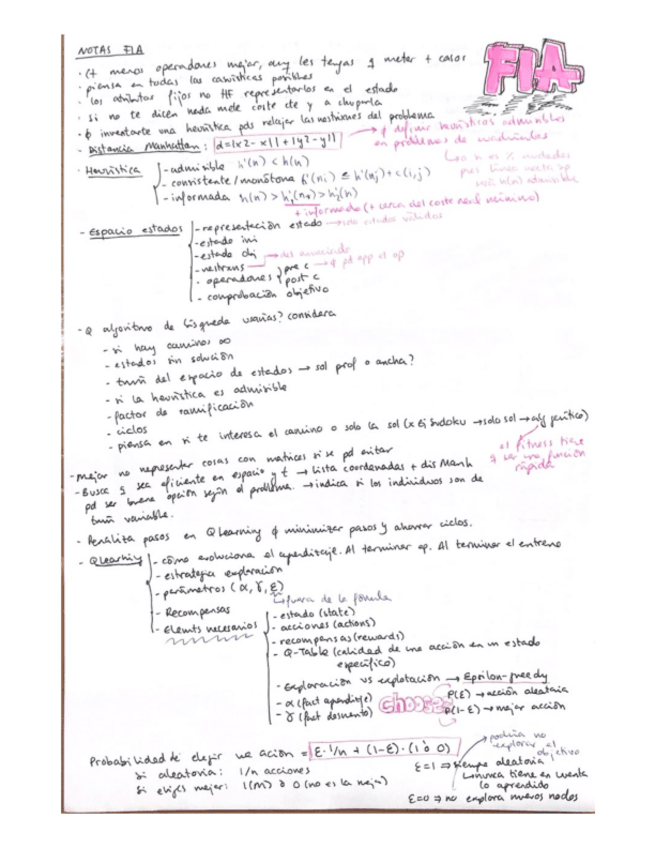 NOTAS FIA
FIA
· Ct menos operadores mejor, aunq les tengas q meter + calor
· piensa en todas las casuísticas posibles
· los atributos fijos no HF representarlos en el estado
· si no te dicen nada mete coste cte y a chuparla
· φ inventarte una heurística pds relajar las restricciones del problema
- Distancia Manhattan: d=|x2-x1|+|y2-y1|
φ definir heurísticos admisibles
en problemas de
- Heurística
- admisible h'(n) < h(n)
- consistente/monótona h'(ni) ≤ h'(nj)+c(i,j)
- informada h(n) > h'1(n) > h'2(n)
+ informada (+ cerca del coste real mínimo)
- Espacio estados
- representación estado → solo estados válidos
- estado ini
- estado obj → del enunciado
- restrans
- operadores
pre c → q pd app el op
post c
- comprobación objetivo
- Q algoritmo de búsqueda usarías? considera
- si hay caminos ∞
- estados sin solución
- tamñ del espacio de estados → sol prof o ancha?
- si la heurística es admisible
- factor de ramificación
- ciclos
- piensa en si te interesa el camino o solo la sol (x ej Sudoku → solo sol → alg genético)
el fitness tiene
q ser una función
rápida
- mejor no representar cosas con matrices si se pd evitar
- Busca q sea eficiente en espacio y t → lista coordenadas + dis Manh
pd ser buena opción según el problema. → indica si los individuos son de
tamñ variable.
- Penaliza pasos en QLearning φ minimizar pasos y ahorrar ciclos.
- QLearning
- cómo evoluciona el aprendizaje. Al terminar ep. Al terminar el entreno
- estrategia exploración
- parámetros (α, γ, ε)
↳ fuera de la fórmula
- Recompensas
- Elemts necesarios
- estado (state)
- acciones (actions)
- recompensas (rewards)
- Q-Table (calidad de una acción en un estado
específico)
- Exploración vs explotación → Epsilon-greedy
- α (fact aprendizaje)
- γ (fact descuento)
choose
P(ε) → acción aleatoria
P(1-ε) → mejor acción
Probabilidad de elegir una acción = ε·1/n + (1-ε)·(1 ó 0)
si aleatoria: 1/n acciones
si eliges mejor: 1(m) ó 0 (no es la mejor)
podría no
explorar el
objetivo
ε=1 ⇒ siempre aleatoria
↳ nunca tiene en cuenta
lo aprendido
ε=0 ⇒ no explora nuevos nodos